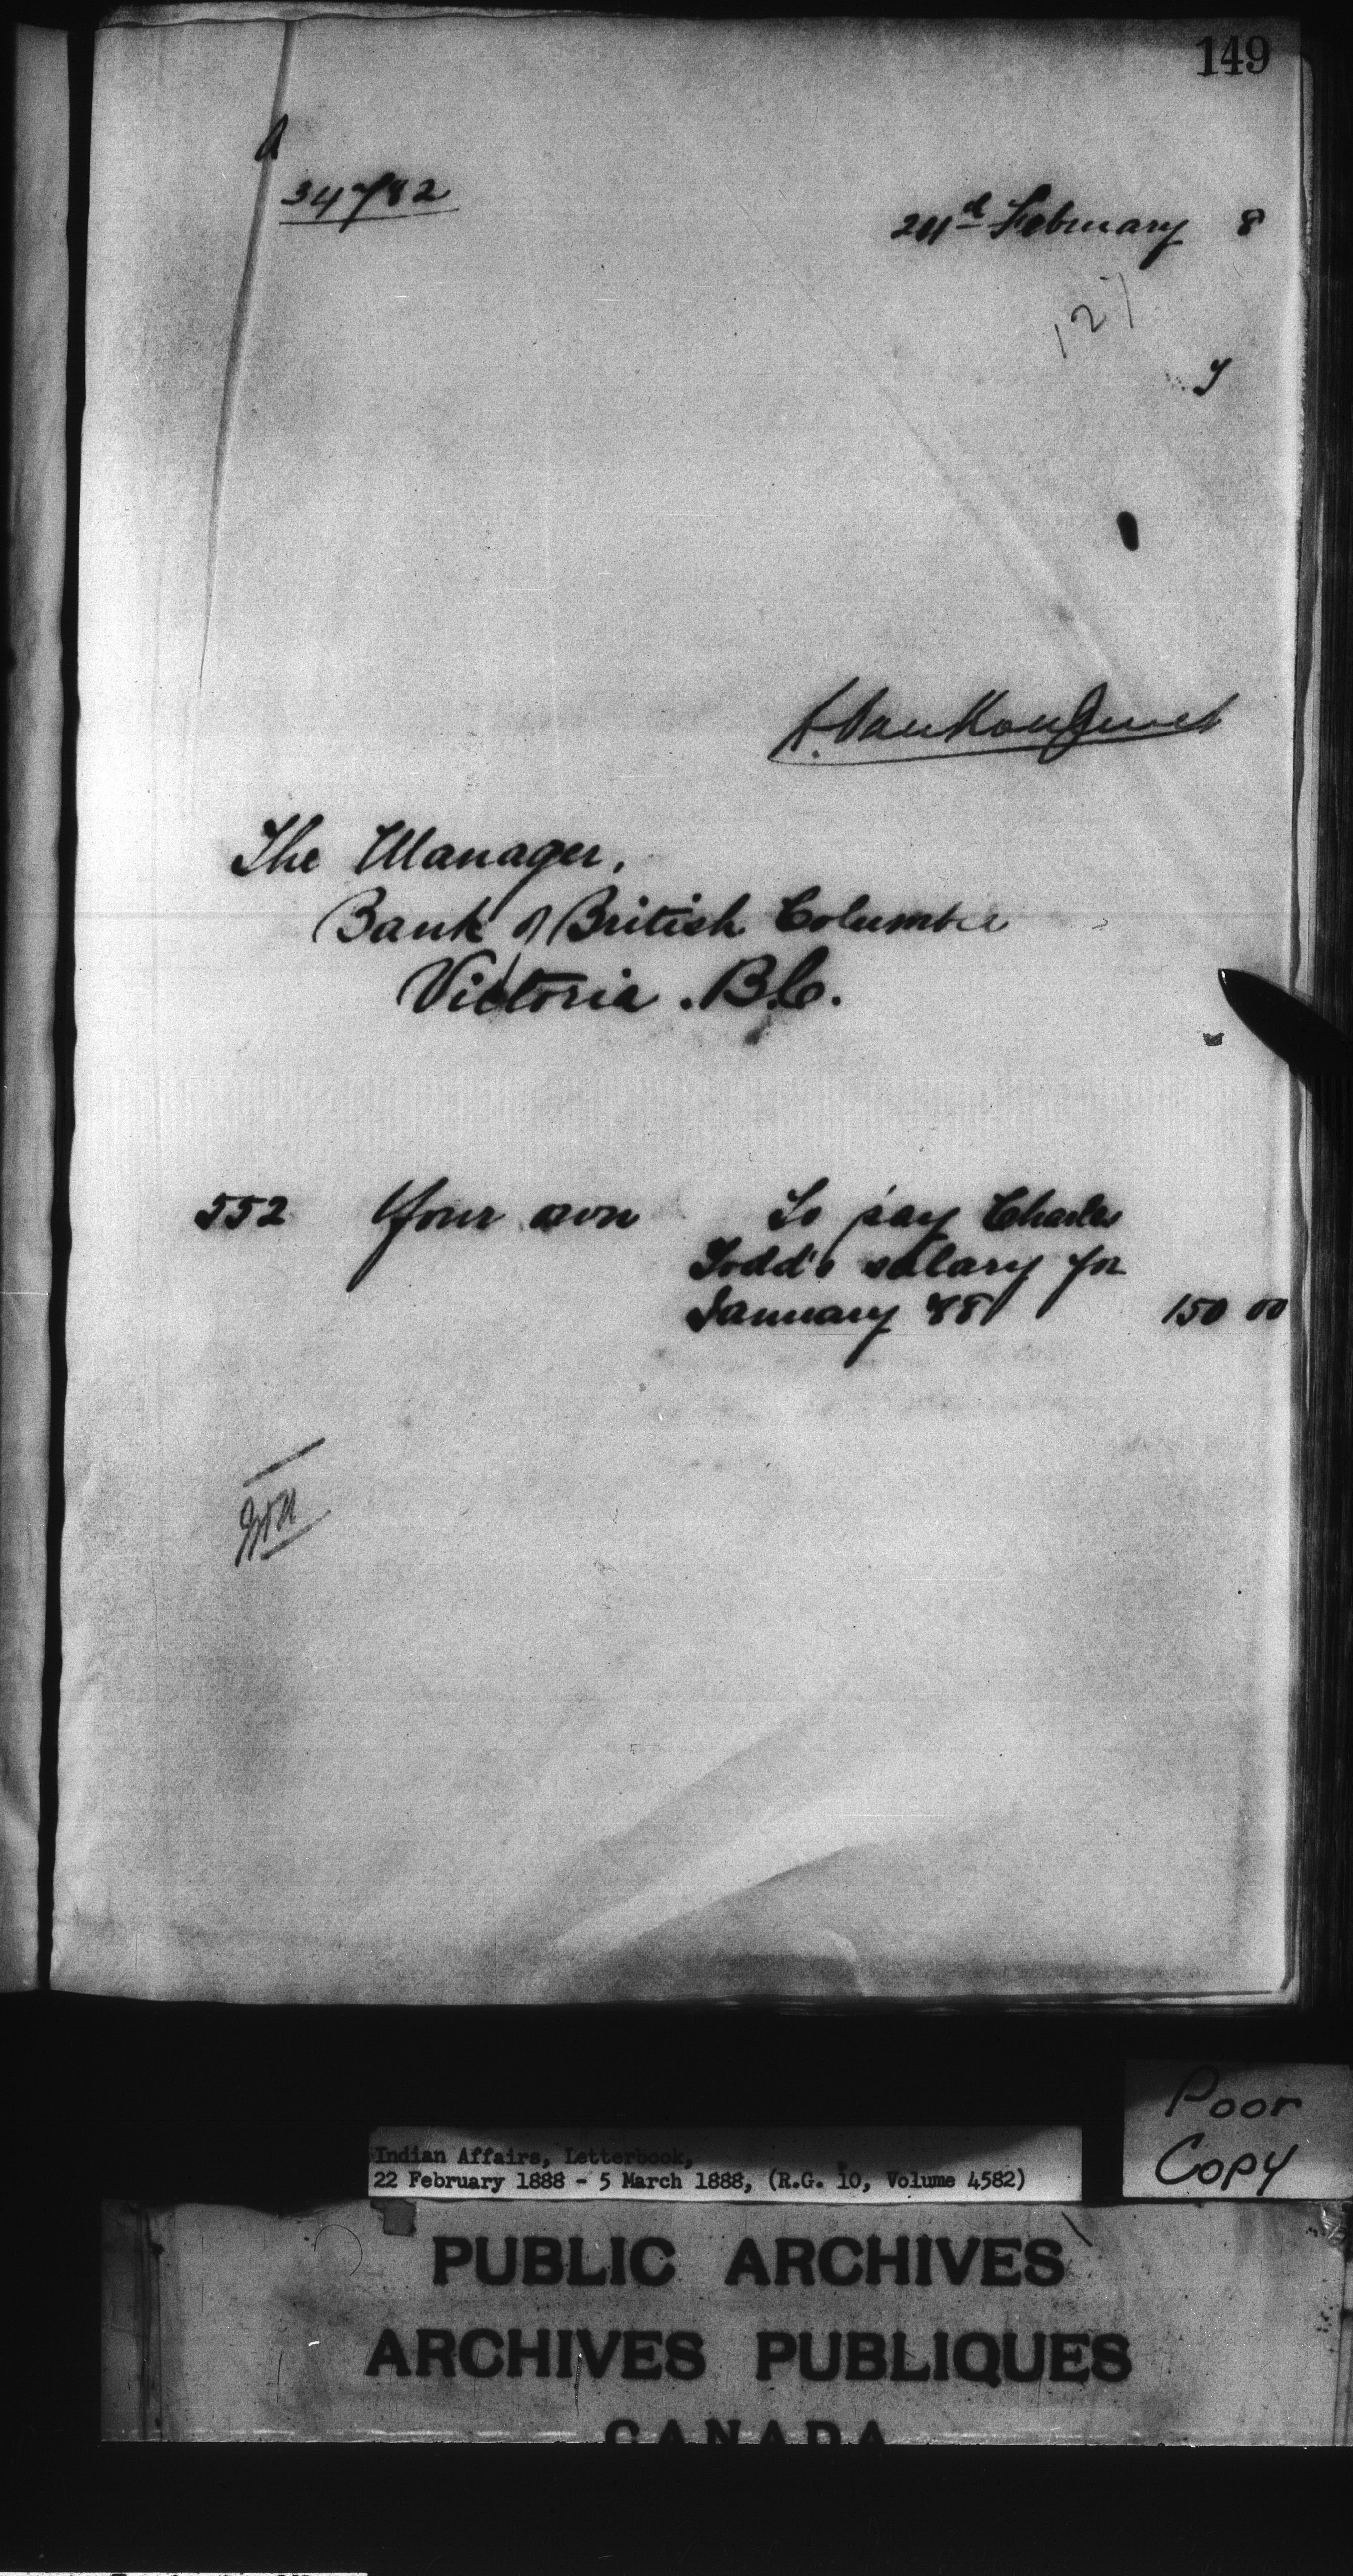 149
34782
24th February 8
127
L. VanKoughnet
The Manager,
Bank of British Columbia
Victoria. B.C.
552 Your own To pay Charles
Todd's salary for
January 88 150 00
Poor
Copy
Indian Affairs, Letterbook,
22 February 1888 - 5 March 1888, (R.G. 10, Volume 4582)
PUBLIC ARCHIVES
ARCHIVES PUBLIQUES
CANADA